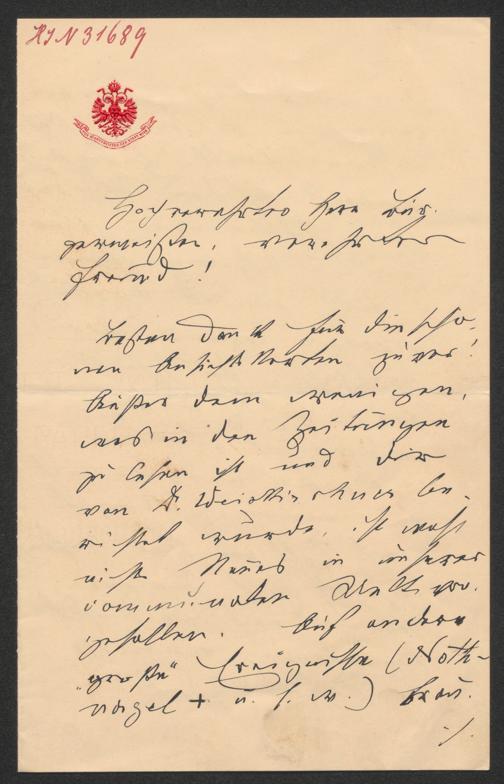 HJN 31689
Hochverehrter Herr Bür-
germeister, verehrter
Freund!
Besten Dank für die schö-
nen Ansichtskarten zuvor!
Außer dem wenigen,
was in den Zeitungen
zu lesen ist und Dir
von Dr. be-
richtet wurde, ist wohl
nichts Neues in unserer
communalen Welt vor-
gefallen. Auf andere
"große" Ereignisse (Noth-
nagel + u. s. w.) brau-
./.